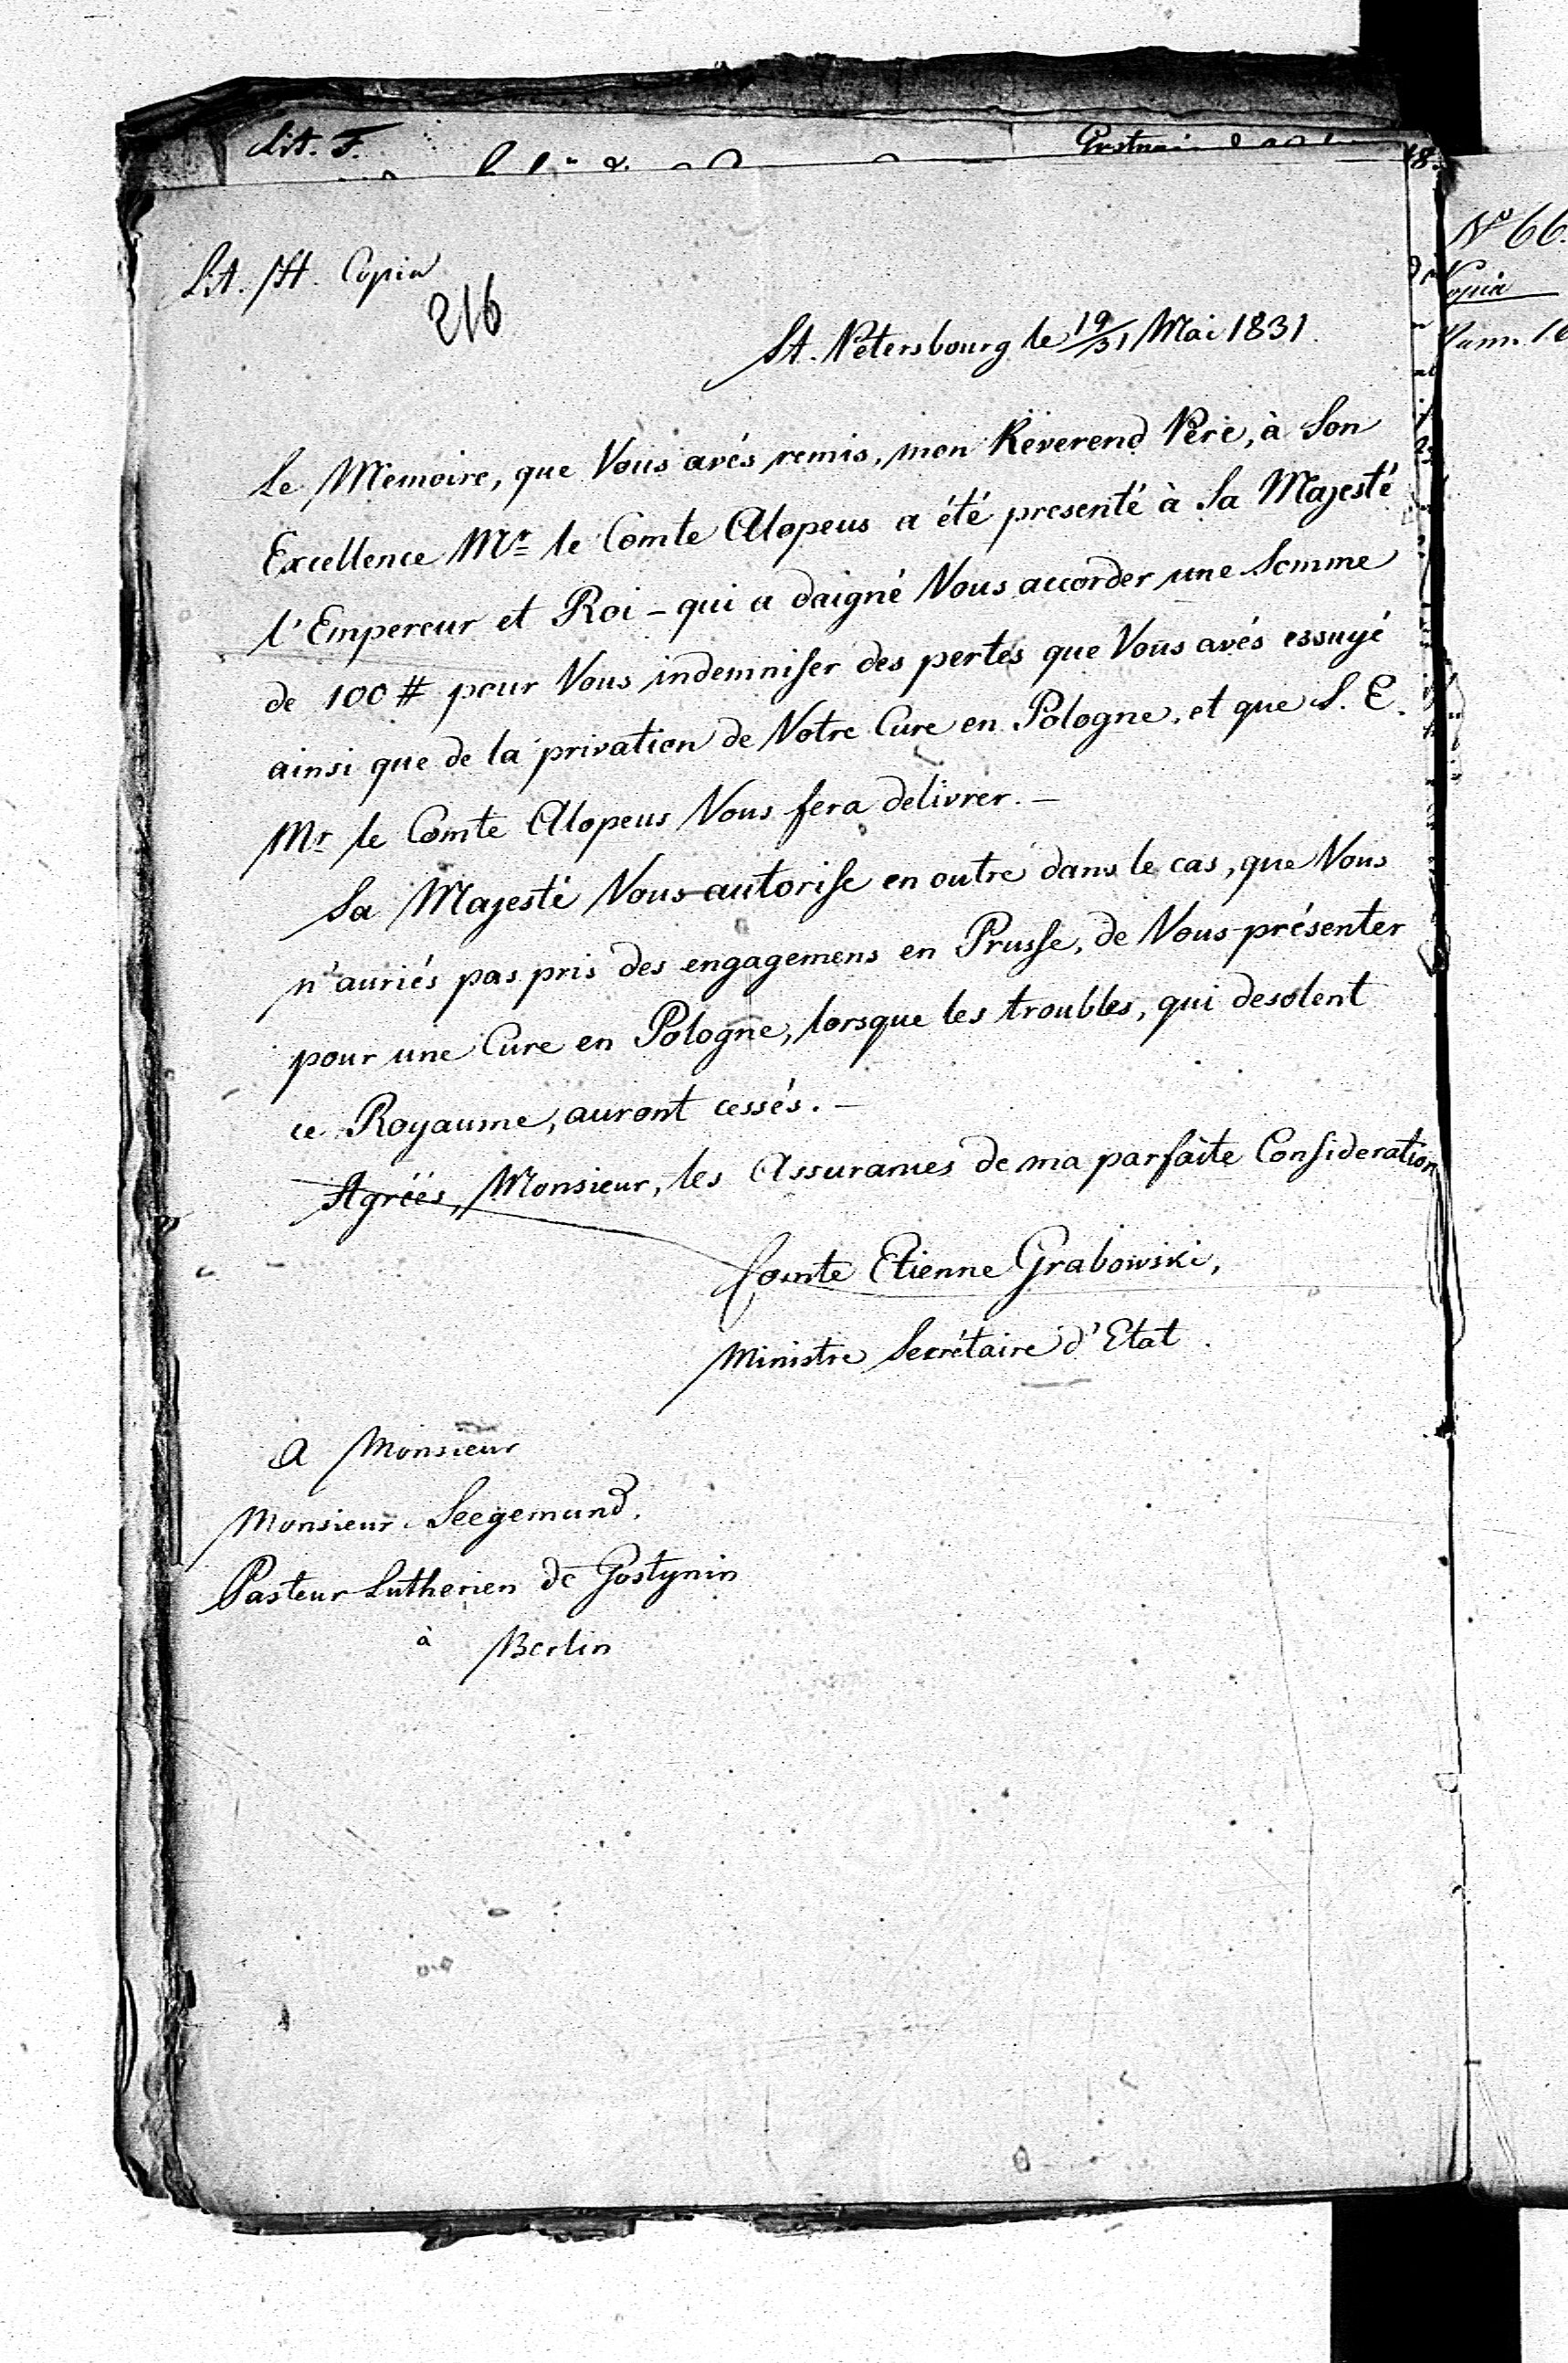 Lit. F.
Lit. H. Copia
216
St. Petersbourg le 19/31 Mai 1831.
Le Mémoire, que Vous avés remis, mon Réverend Père, à Son
Excellence Mr le Comte Alopeus a été presenté à Sa Majesté
l'Empereur et Roi – qui a daigné Vous accorder une Somme
de 100 # pour Vous indemniser des pertes que Vous avés essuyé
ainsi que de la privation de Votre Cure en Pologne, et que S. E.
Mr le Comte Alopeus Vous fera delivrer. –
Sa Majesté Vous autorise en outre dans le cas, que Vous
n'auriés pas pris des engagemens en Prusse, de Vous présenter
pour une Cure en Pologne, lorsque les troubles, qui desolent
ce Royaume, auront cessés. –
Agréés, Monsieur, les Assurances de ma parfaite Consideration
Comte Etienne Grabowski,
Ministre Secrétaire d'Etat.
A Monsieur
Monsieur Seegemund.
Pasteur Lutherien de Gostynin
à Berlin
No 66.
Copia